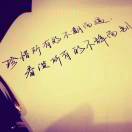 珍惜所有的不期而遇
看淡所有的不辞而别